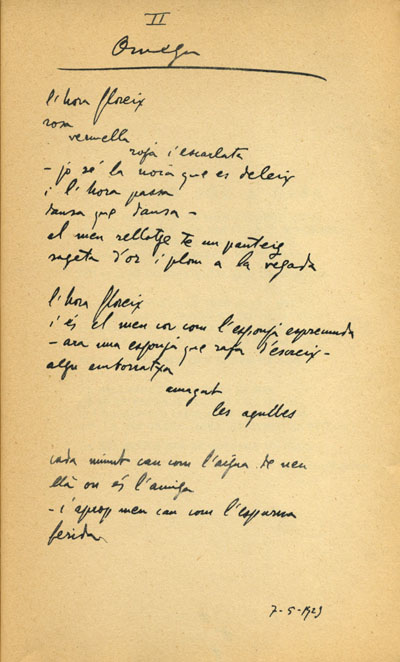 II
Omega
l'hora floreix
rosa
vermella
roja i escarlata
- jo sé la noia que es deleix
i l'hora passa
dansa que dansa -
el meu rellotge té un panteig
sageta d'or i plom a la vegada
l'hora floreix
i és el meu cor com l'esponja espremuda
- ara una esponja que raja d'escreix -
algú emborratxa
amagat
les agulles
cada minut cau com l'aigua de neu
allà on és l'amiga
- i aprop meu cau com l'espurna
ferida
7-5-1923